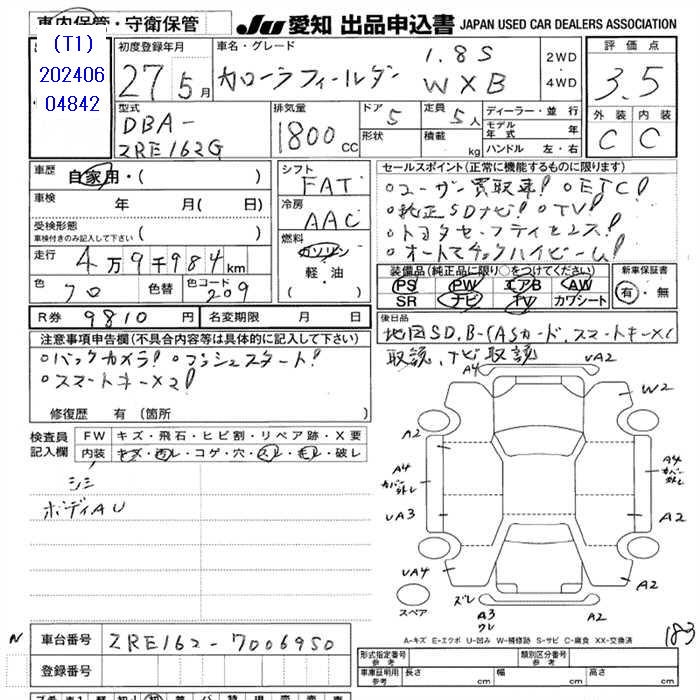 車内保管・守衛保管
(T1)
202406
04842
JU 愛知 出品申込書 JAPAN USED CAR DEALERS ASSOCIATION
初度登録年月
27 5月
車名・グレード
カローラフィールダー
1.8S
WXB
2WD
・
4WD
評価点
3.5
外装 内装
C C
型式
DBA-
ZRE162G
排気量
1800 CC
ドア 5
定員 5人
形状
積載 kg
ディーラー・並行
モデル年式 年
ハンドル 左・右
車歴
自家用・( )
車検 年 月( 日)
受検形態
車検付きのみ記入して下さい ( )
走行 4万9千984km
色 クロ 色替 色コード 209
R券 9810円 名変期限 月 日
シフト
FAT
冷房
AAC
燃料
ガソリン
軽・油
( )
セールスポイント(正常に機能するものに限ります)
○ユーザー買取車! ○ETC!
○純正SDナビ! ○TV!
○トヨタセーフティセンス!
○オートマチックハイビーム!
装備品(純正品に限り○をつけてください)
PS PW エアB AW
SR ナビ TV カワシート
新車保証書
有・無
後日品
地図SD、B-CASカード、スマートキーX1
取説、ナビ取説
注意事項申告欄(不具合内容等は具体的に記入して下さい)
○バックカメラ! ○プッシュスタート!
○スマートキーX2!
修復歴 有 (箇所 )
検査員
記入欄
FW キズ・飛石・ヒビ割・リペア跡・X要
内装 キズ・汚レ・コゲ・穴・スレ・モレ・破レ
シミ
ボディAU
A4 UA2
W2
A2
A4
カバー
外レ
A4
カバー
外レ
UA3
A2
UA4
A2
スペア
ズレ
A3
ワレ
A2
A-キズ E-エクボ U-凹み W-補修跡 S-サビ C-腐食 XX-交換済
183
N
車台番号 ZRE162-7006950
登録番号
型式指定番号 参考
類別区分番号 参考
車庫証明用 参考 長さ cm 幅 cm 高さ cm